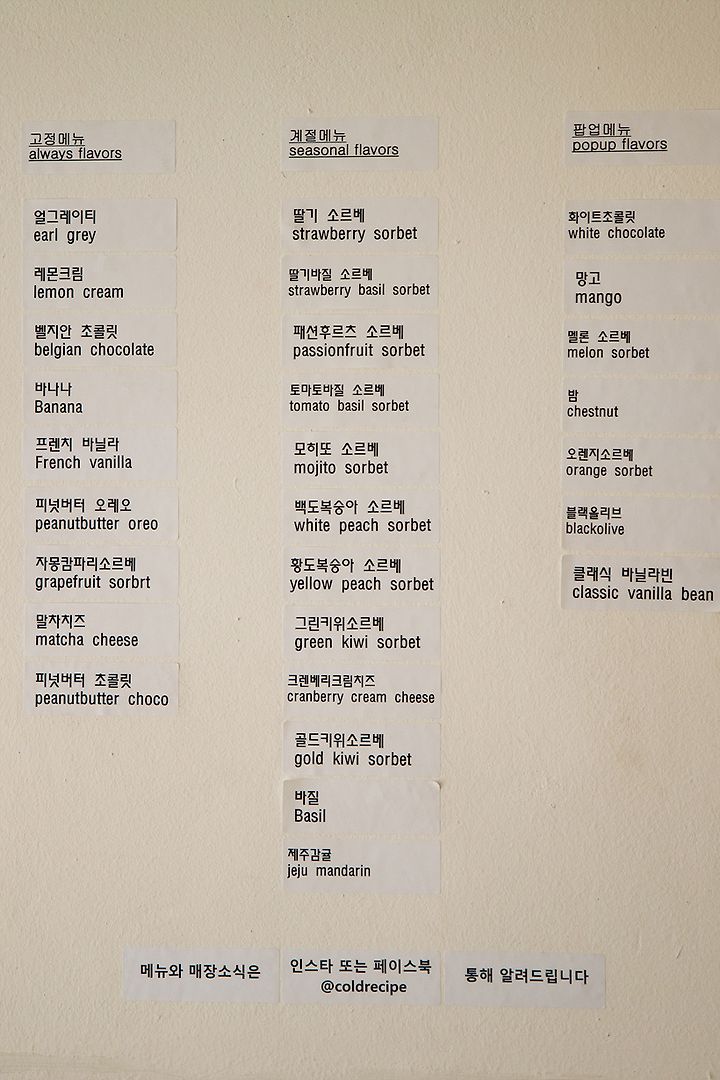 고정메뉴
always flavors
얼그레이티
earl grey
레몬크림
lemon cream
벨지안 초콜릿
belgian chocolate
바나나
Banana
프렌치 바닐라
French vanilla
피넛버터 오레오
peanutbutter oreo
자몽캄파리소르베
grapefruit sorbrt
말차치즈
matcha cheese
피넛버터 초콜릿
peanutbutter choco
계절메뉴
seasonal flavors
딸기 소르베
strawberry sorbet
딸기바질 소르베
strawberry basil sorbet
패션후르츠 소르베
passionfruit sorbet
토마토바질 소르베
tomato basil sorbet
모히또 소르베
mojito sorbet
백도복숭아 소르베
white peach sorbet
황도복숭아 소르베
yellow peach sorbet
그린키위소르베
green kiwi sorbet
크렌베리크림치즈
cranberry cream cheese
골드키위소르베
gold kiwi sorbet
바질
Basil
제주감귤
jeju mandarin
팝업메뉴
popup flavors
화이트초콜릿
white chocolate
망고
mango
멜론 소르베
melon sorbet
밤
chestnut
오렌지소르베
orange sorbet
블랙올리브
blackolive
클래식 바닐라빈
classic vanilla bean
메뉴와 매장소식은
인스타 또는 페이스북
@coldrecipe
통해 알려드립니다